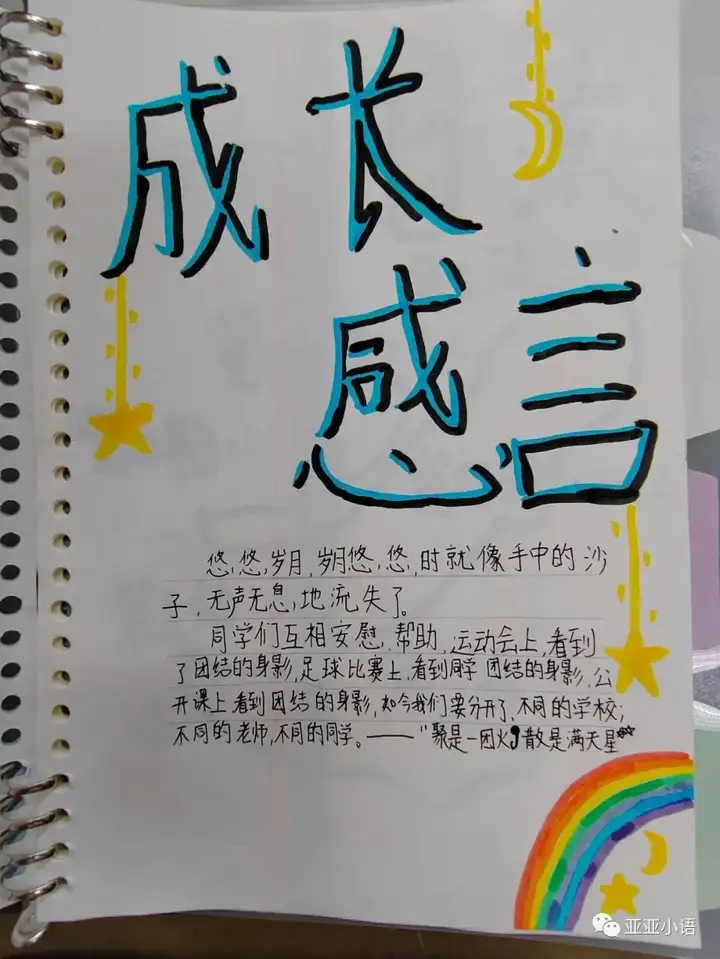 成长
感言
悠,悠,岁月,岁月悠,悠,时就像手中的沙
子,无声无息,地流失了。
同学们互相安慰,帮助,运动会上,看到
了团结的身影,足球比赛上,看到同学团结的身影,公
开课上看到团结的身影,如今我们要分开了,不同的学校;
不同的老师,不同的同学。——“聚是一团火,散是满天星”
亚亚小语